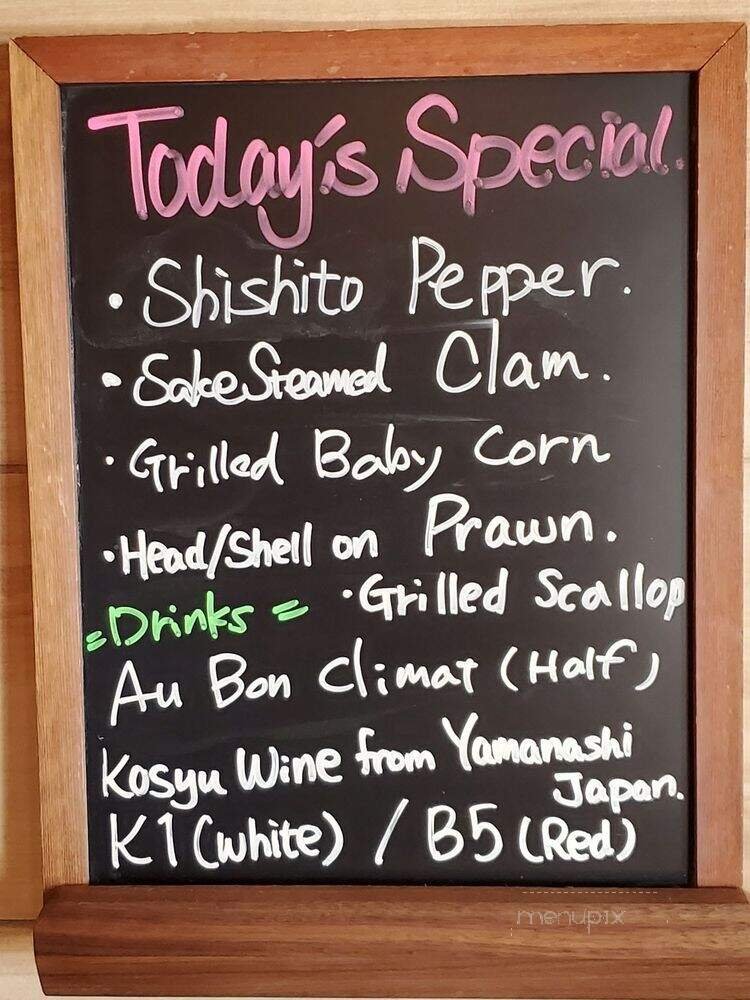 Today's Special.
· Shishito Pepper.
· Sake Steamed Clam.
· Grilled Baby Corn
· Head/Shell on Prawn.
· Grilled Scallop
= Drinks =
Au Bon Climat (Half)
Kosyu Wine from Yamanashi
Japan.
K1 (white) / B5 (Red)
menupix